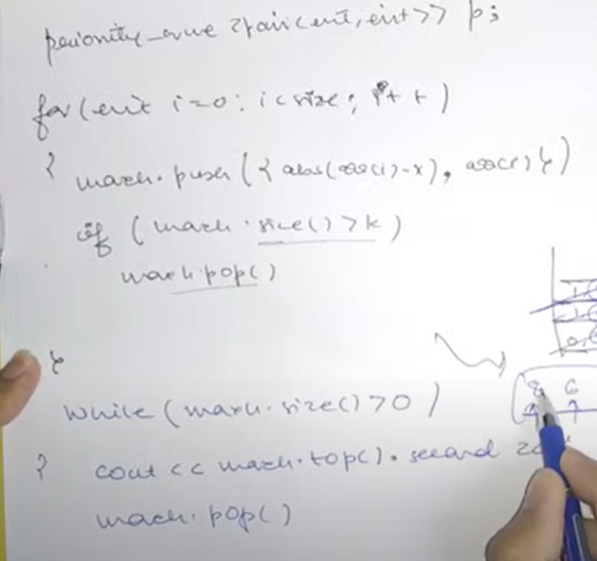 priority_queue <pair<int,int>> p;
for(int i=0; i<size; i++)
{
maxh.push({abs(arr[i]-x), arr[i]})
if (maxh.size()>k)
maxh.pop()
}
while (maxh.size()>0)
{ cout << maxh.top().second
maxh.pop()
8 6